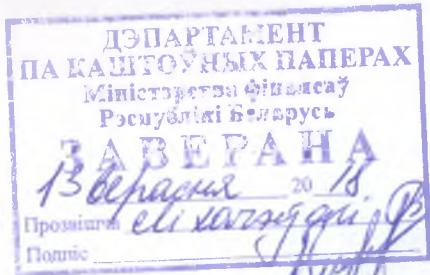 ДЭПАРТАМЕНТ
ПА КАШТОЎНЫХ ПАПЕРАХ
Міністэрства фінансаў
Рэспублікі Беларусь
ЗАВЕРАНА
13 верасня 20 18
Прозвішча
Подпіс